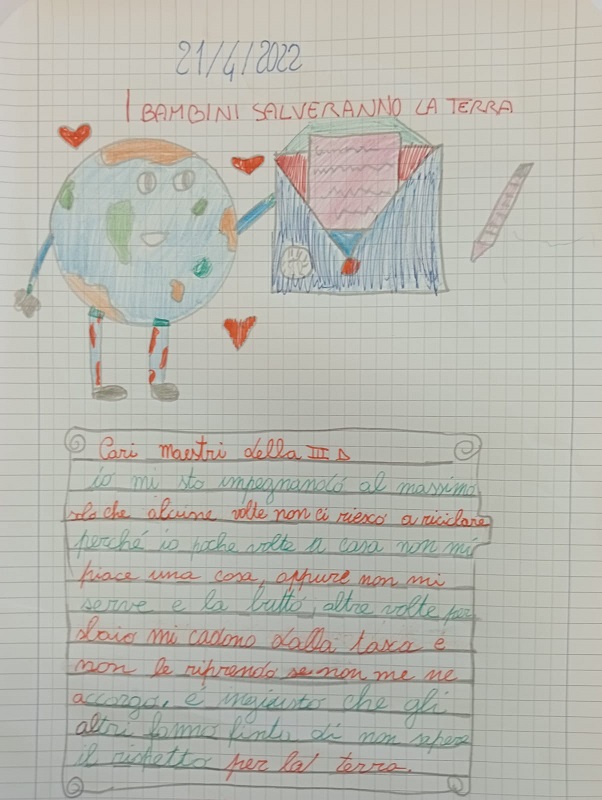 21/4/2022
I BAMBINI SALVERANNO LA TERRA
Cari maestri della III D
io mi sto impegnando al massimo
solo che alcune volte non ci riesco a riciclare
perché io poche volte a casa non mi
piace una cosa, oppure non mi
serve e la butto, altre volte per
sbaio mi cadono dalla tasca e
non le riprendo se non me ne
accorgo, è ingiusto che gli
altri fanno finta di non sapere
il richetto per la terra.